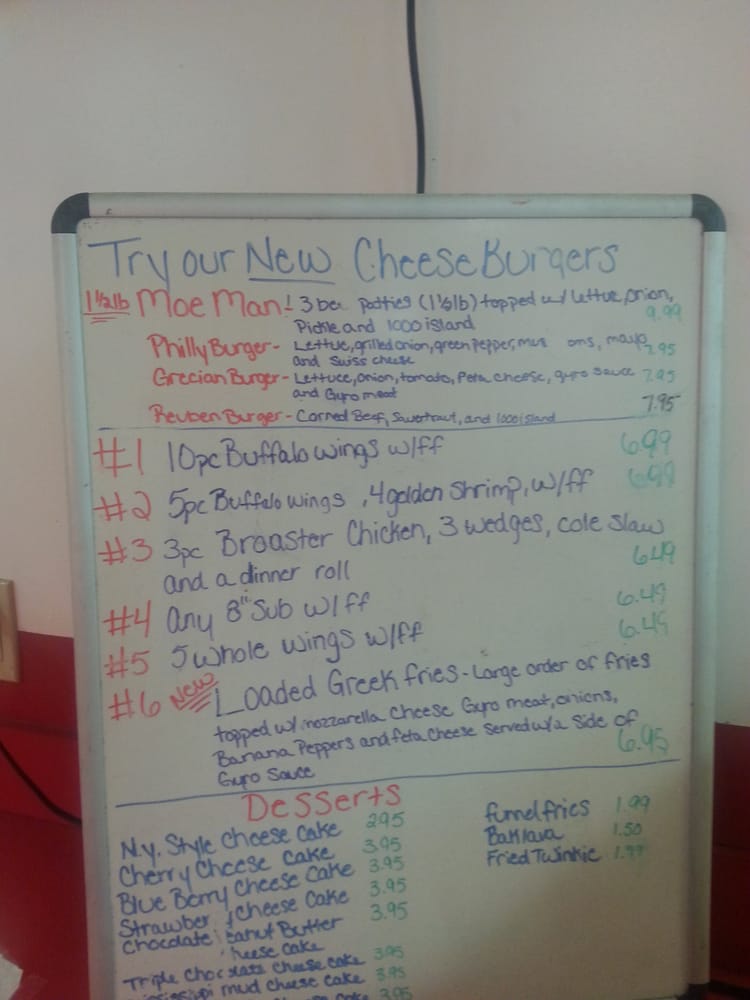 Try our New CheeseBurgers
1 1/2 lb Moe Man! 3 patties (1 1/2 lb) topped w/ lettuce, onion,
Pickle and 1000 island 9.99
Philly Burger - Lettuce, grilled onion, green Pepper, mayo 7.95
and Swiss cheese
Grecian Burger - Lettuce, onion, tomato, Feta cheese, gyro sauce 7.95
and Gyro meat
Reuben Burger - Corned Beef, Sauerkraut, and 1000 island 7.95
#1 10pc Buffalo wings w/ff 6.99
#2 5pc Buffalo wings, 4 golden Shrimp, w/ff 6.99
#3 3pc Broaster Chicken, 3 wedges, cole slaw
and a dinner roll 6.49
#4 any 8" Sub w/ff 6.49
#5 5 whole wings w/ff 6.49
#6 New Loaded Greek fries - Large order of fries
topped w/ mozzarella cheese Gyro meat, onions,
Banana Peppers and feta cheese served w/a side of
Gyro Sauce 6.95
Desserts
N.y. Style Cheese cake 2.95
Cherry Cheese cake 3.95
Blue Berry Cheese Cake 3.95
Cheese Cake 3.95
Chocolate Butter 3.95
Cake
Triple cheese cake 3.95
mud cheese cake 3.95
cake 3.95
funnel fries 1.99
Baklava 1.50
Fried Twinkie 1.99